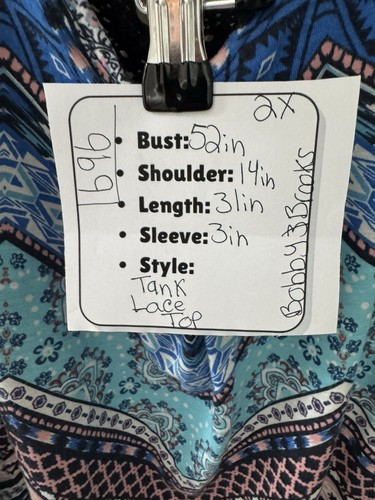 2X
1696
Bust: 52in
Shoulder: 14in
Length: 31in
Sleeve: 3in
Style:
Tank
Lace
Top
Bobby Brooks